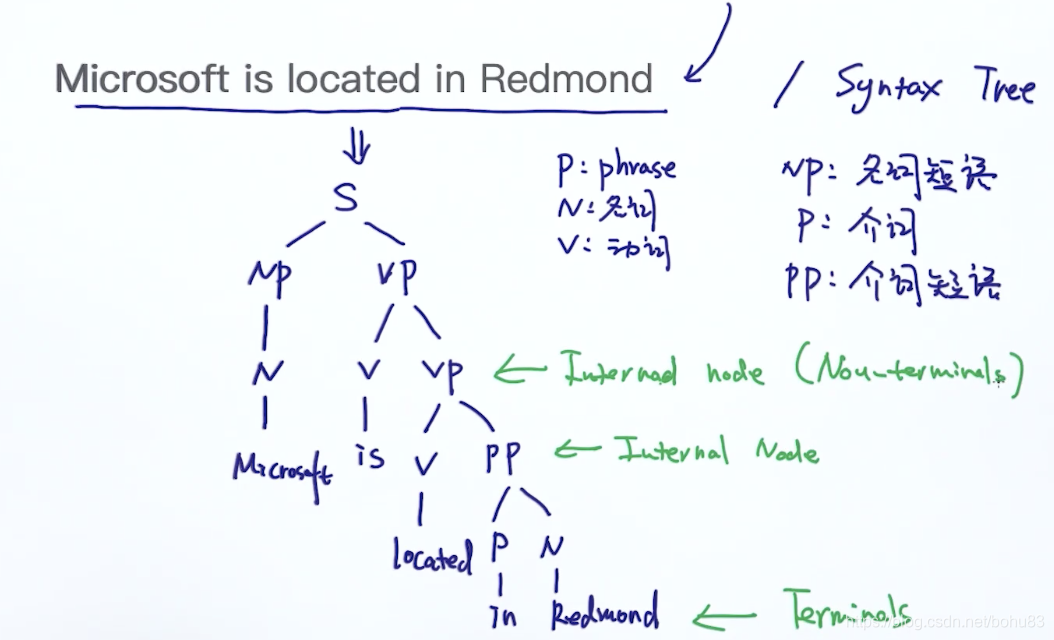 Microsoft is located in Redmond
/ Syntax Tree
S
P: phrase
NP: 名词短语
N: 名词
P: 介词
V: 动词
NP VP
PP: 介词短语
N V VP ← Internal node (Non-terminals)
Microsoft is V PP ← Internal Node
located P N
In Redmond ← Terminals
https://blog.csdn.net/bohu83